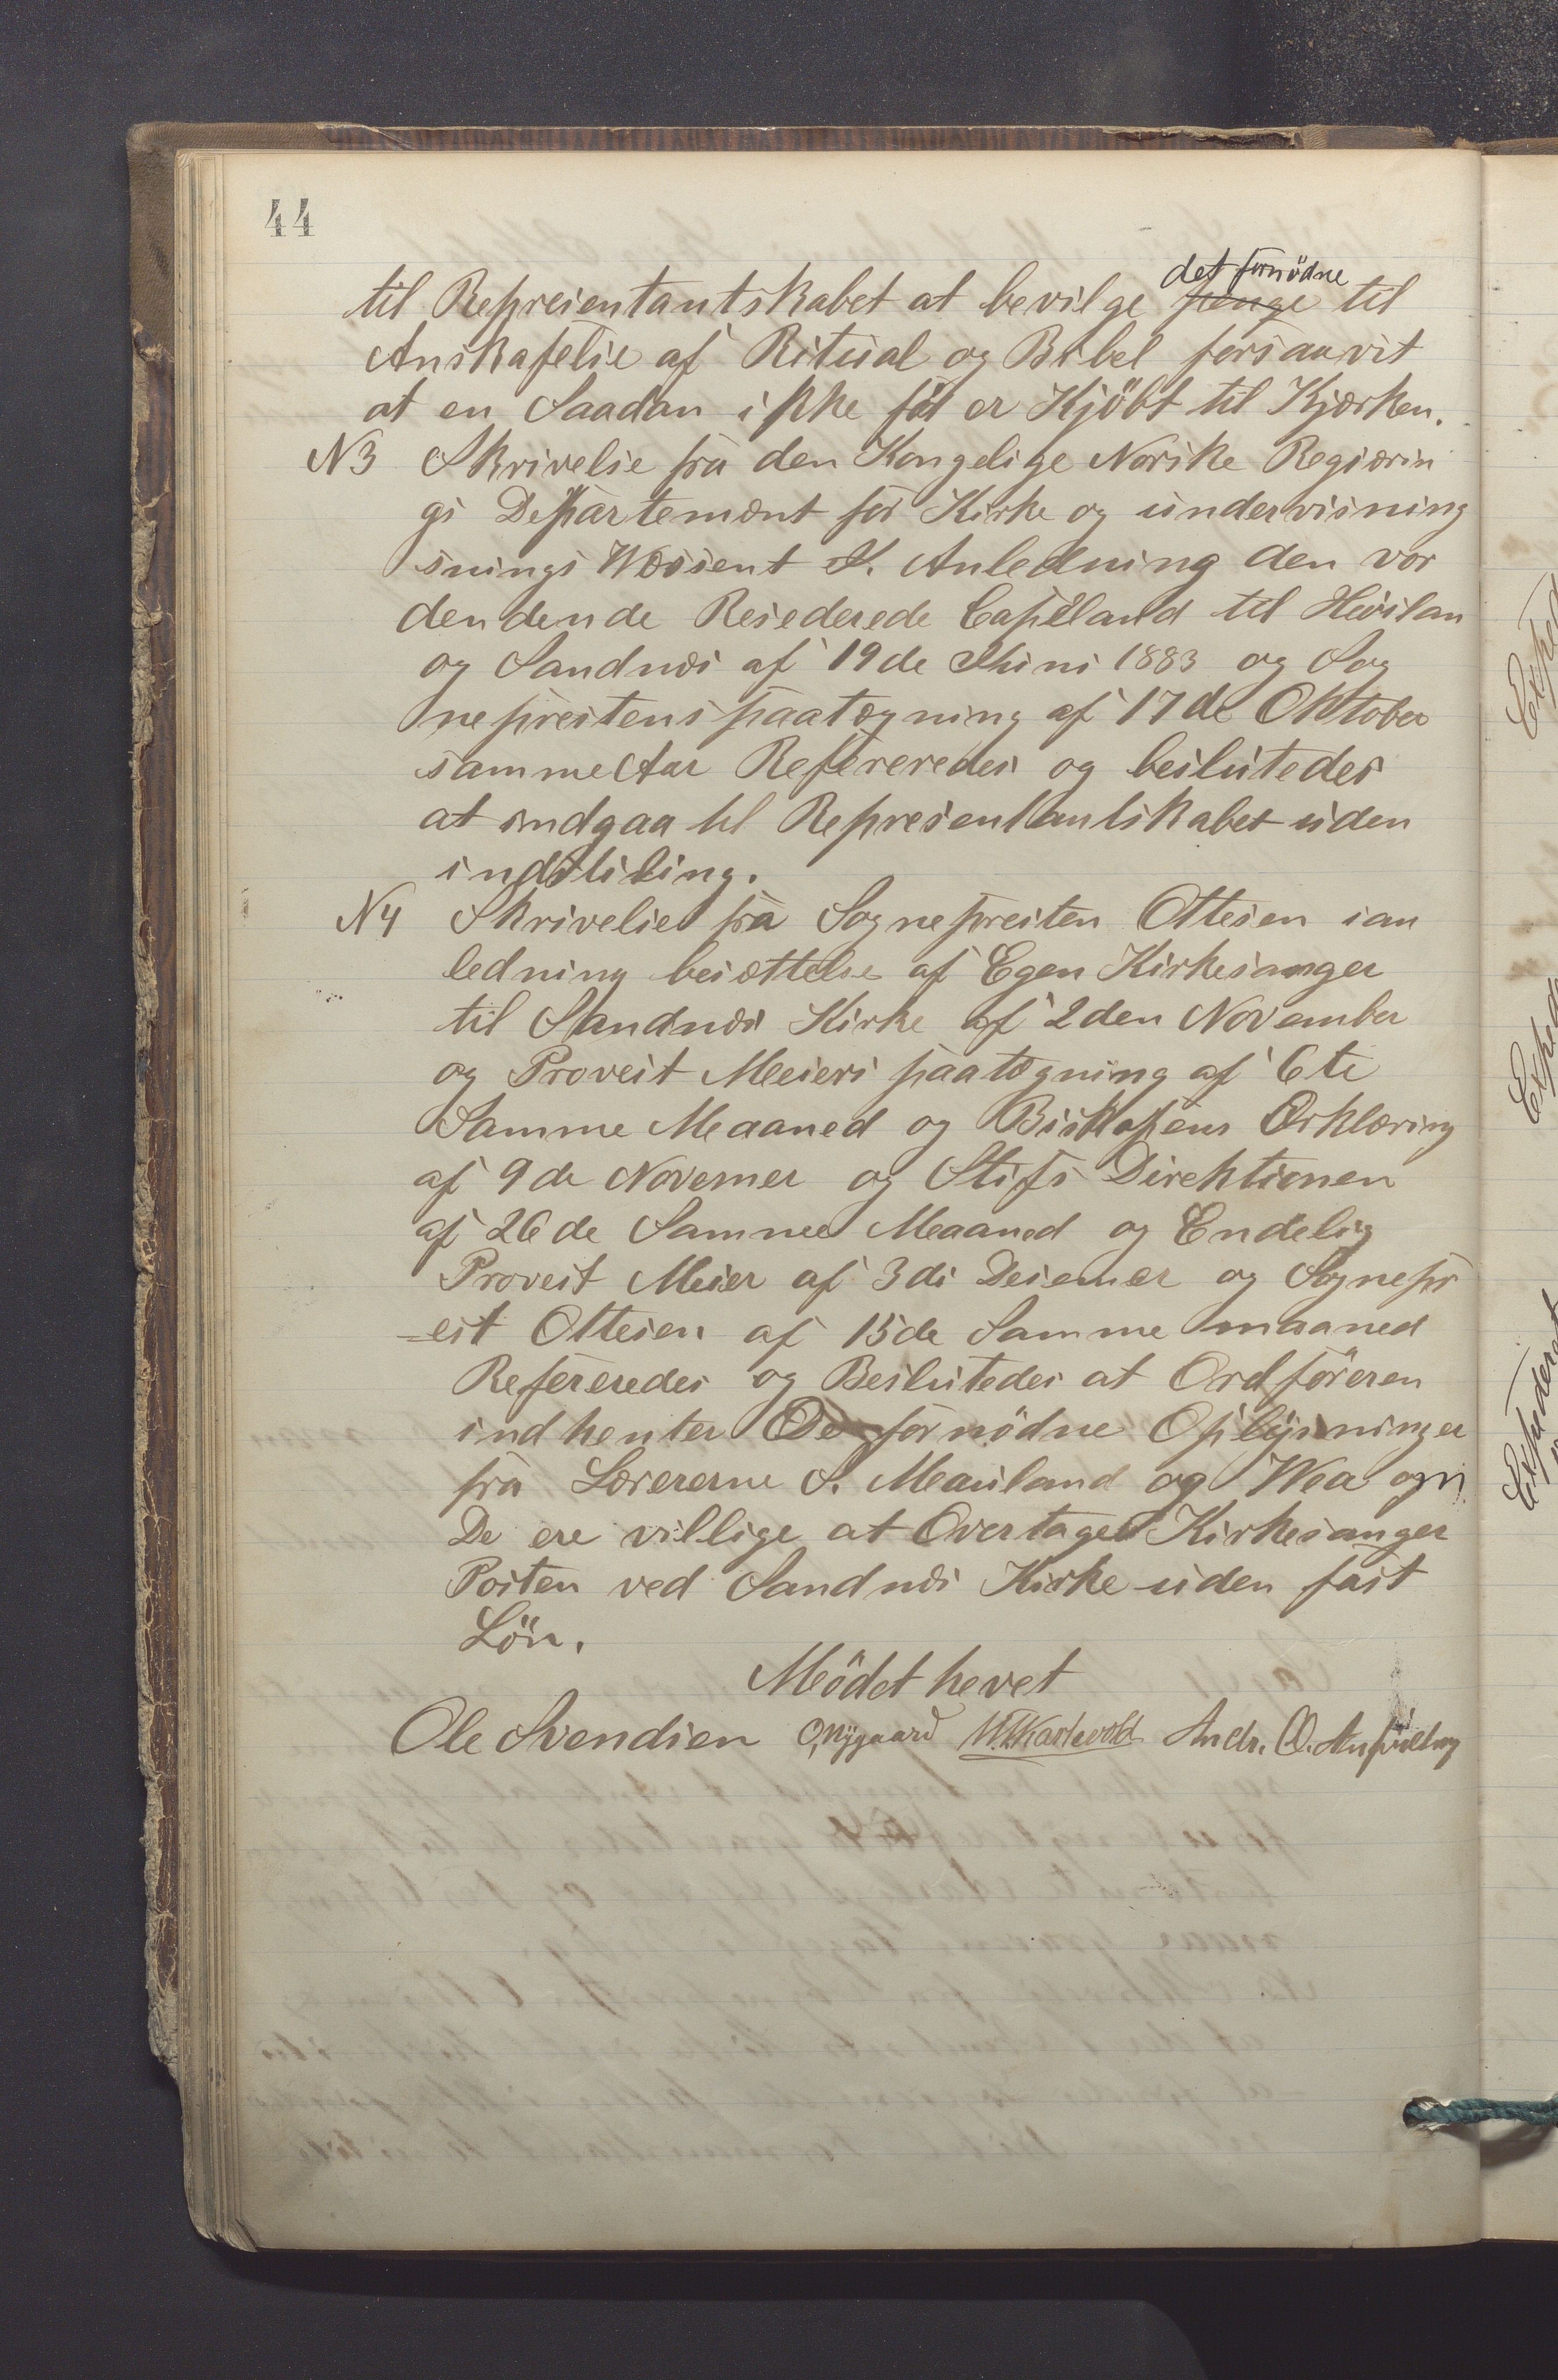 44
til Represientantskabet at bevilge det fornödne penge til
Anskafelse af Ritual og Bibel forsaavit
at en Saadan ikke för er Kjöbt til Kjærken.
N3 Skrivelse fra den Kongelige Norske Regiærin
gs Departemænt for Kirke og undervisning
snings Wæssent I. Anledning den vor
dendende Resederede Capelland til Höiland
og Sandnæs af 19de Juni 1883 og Sog
neprestens paategning af 17de Oktober
samme Aar Refereredes og beslutedes
at indgaa til Representantskabet uden
indstiling.
N4 Skrivelse fra Sognepresten Ottesen ian
ledning besættelse af Egen Kirkesanger
til Sandnæs Kirke af 2den November
og Provest Meiers paategning af 6te
Samme Maaned og Biskopens Erklæring
af 9de Novemer og Stifs Direktionen
af 26de Samme Maaned og Endelig
Provest Meier af 3di Desemer og Sognepr
=est Ottesen af 15de Samme maaned
Refereredes og Beslutedes at Ordföreren
indhenter De fornödne Oplysninger
fra Lærererne S. Mauland og Wea om
De ere villige at Overtage Kirkesanger
Posten ved Sandnæs Kirke uden fast
Lön.
Mödet hevet
Ole Svendsen O, Nygaard Andr. O.
Exped
Exped
Expederet